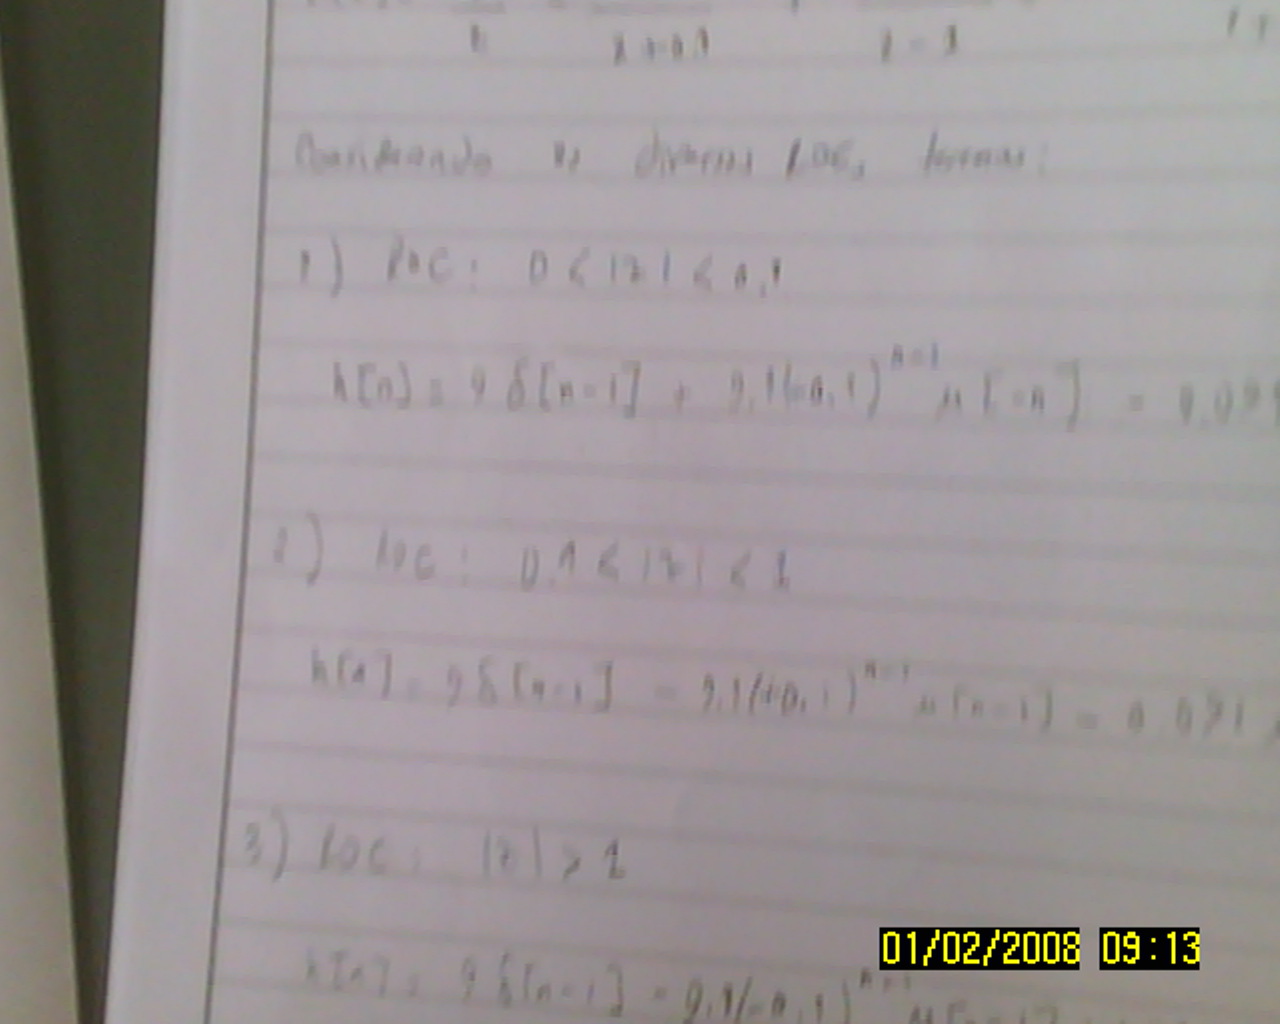 z z+0.1 z-1
Considerando as diversas ROCs, temos:
1) ROC: 0 < |z| < 0,1
h[n] = 9 δ[n-1] + 9,1(-0,1)^{n-1} μ[-n] =
2) ROC: 0,1 < |z| < 1
h[n] = 9 δ[n-1] - 9,1(-0,1)^{n-1} μ[n-1] = 0.091
3) ROC: |z| > 1
h[n] = 9 δ[n-1] - 9,1(-0,1)^{n-1}
01/02/2008 09:13